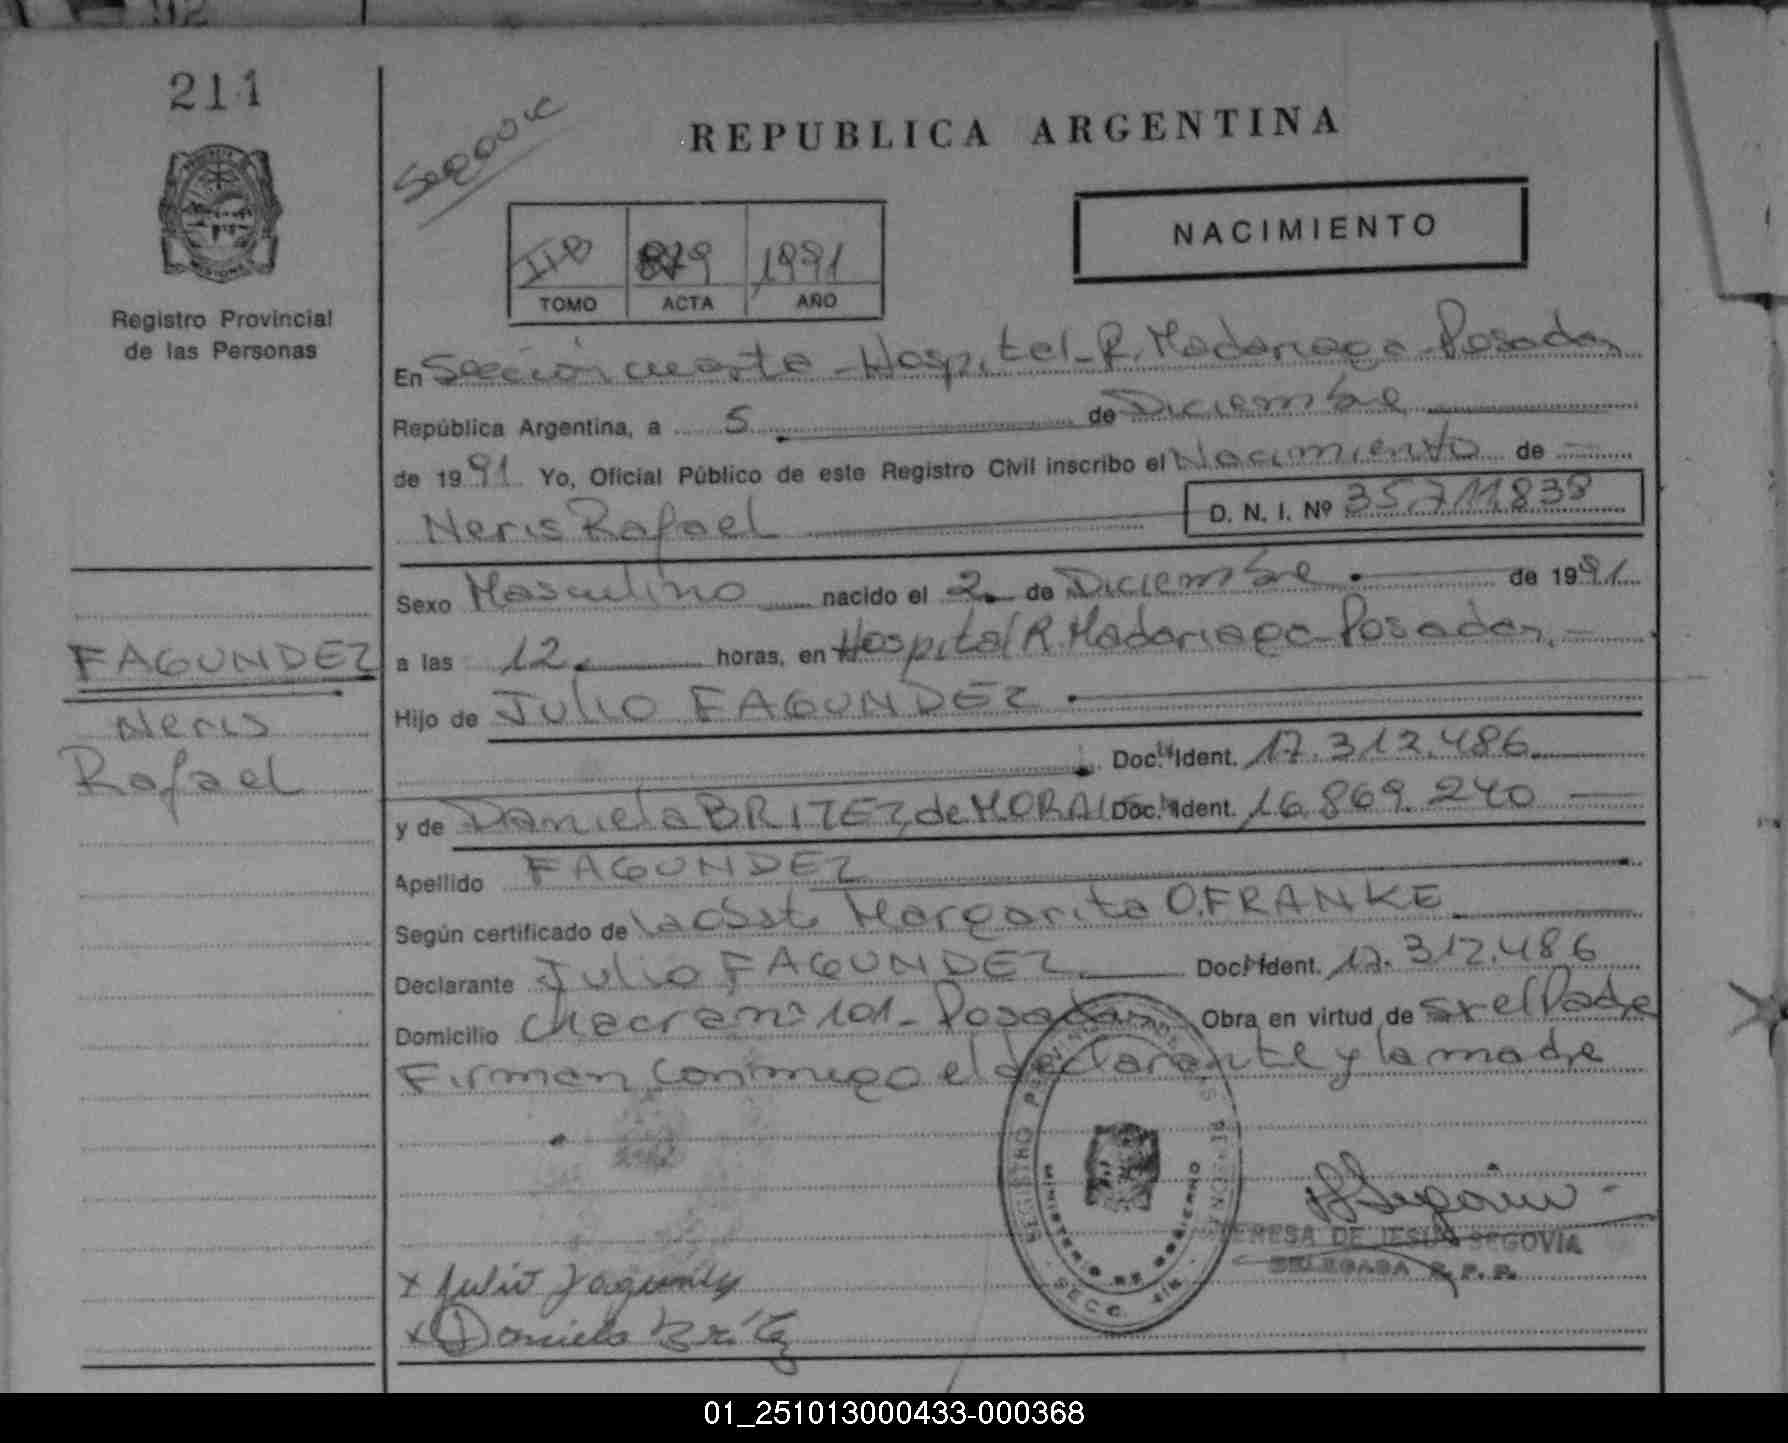 211
Registro Provincial
de las Personas
FAGUNDEZ
Neris
Rafael
REPUBLICA ARGENTINA
NACIMIENTO
IIB 879 1991
TOMO ACTA AÑO
En Sección cuarta - Hospital - R. Madariaga - Posadas
República Argentina, a 5 de Diciembre
de 1991 Yo, Oficial Público de este Registro Civil inscribo el Nacimiento de
Neris Rafael D. N. I. Nº 35711838
Sexo Masculino nacido el 2 de Diciembre de 1991
a las 12 horas, en Hospital R. Madariaga - Posadas
Hijo de Julio FAGUNDEZ
Doc. Ident. 17.312.486
y de Daniela BRITEZ de MORALES Doc. Ident. 16.869.240
Apellido FAGUNDEZ
Según certificado de la obst. Margarita O. FRANKE
Declarante Julio FAGUNDEZ Doc. Ident. 17.312.486
Domicilio chacra nº 101 - Posadas Obra en virtud de ser el Padre
Firman conmigo el declarante y la madre
REGISTRO PROVINCIAL DE LAS PERSONAS
MINISTERIO DE GOBIERNO
SECC. 4ta
TERESA DE JESUS SEGOVIA
DELEGADA R. P. P.
x Julio Fagundez
x Daniela Britez
01_251013000433-000368